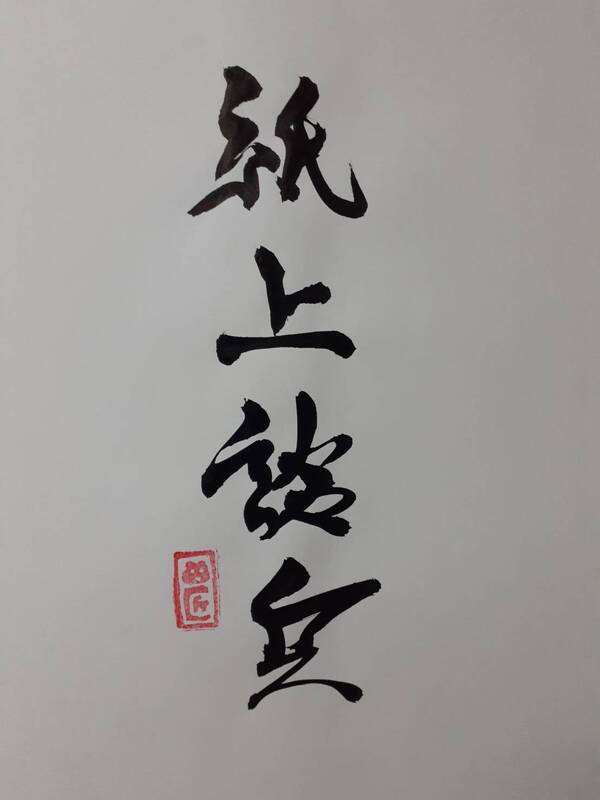 紙上談兵